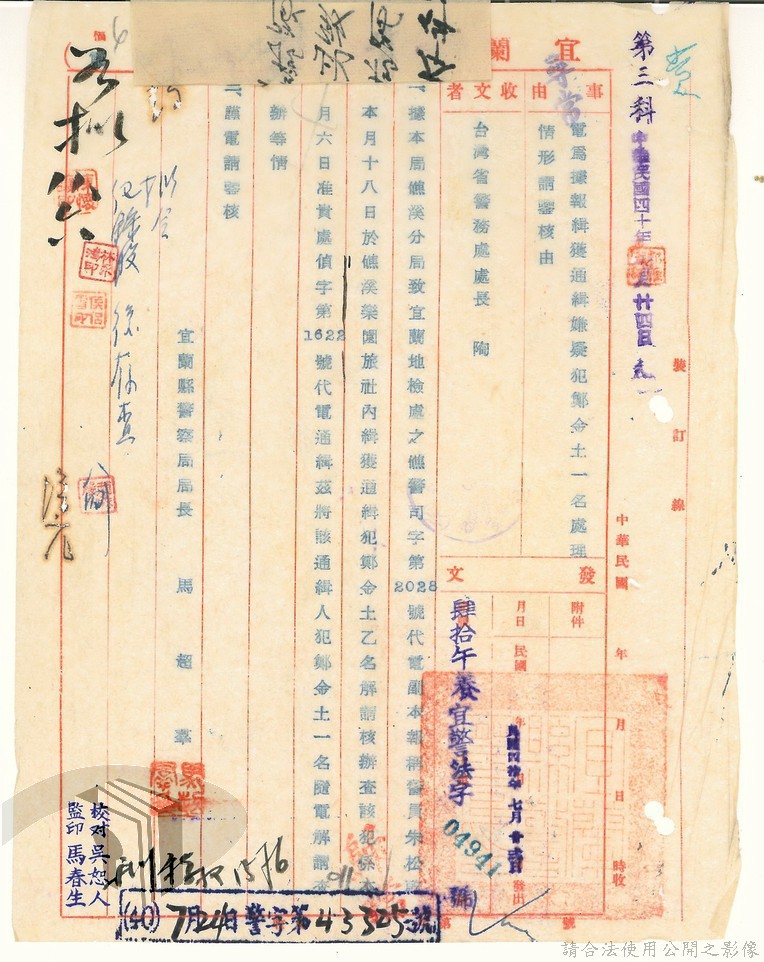 第三科
中華民國四十年七月廿四日
裝訂線
中華民國 年 月 日 時收
宜蘭
平常
事由
電為據報緝獲通緝嫌疑犯鄭金土一名處理
情形請審核由
收文者
台灣省警務處處長 陶
發文
附件
月日 民國 年
民國四十年 七月 發出
肆拾午養宜警法字 04941 號
第 號
一、據本局礁溪分局致宜蘭地檢處之礁警司字第2028號代電副本報稱警員朱松
本月十八日於礁溪樂園旅社內緝獲通緝犯鄭金土乙名解請核辦查該犯係本
月六日准貴處偵字第1622號代電通緝茲將該通緝人犯鄭金土一名隨電解請查
辦等情
二、謹電請審核
宜蘭縣警察局局長 馬超羣
擬
存查
校对 吳恕人
監印 馬春生
(40) 7月24日 警字第43325號
請合法使用公開之影像